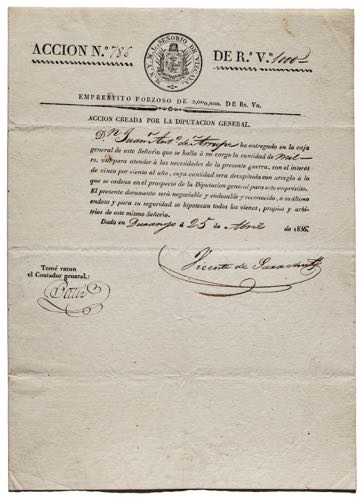 ACCION N.º 786
M.N. Y M.L. SEÑORIO DE VIZCAYA
DE R.ˢ V.ⁿ 1000
EMPRESTITO FORZOSO DE 2,000,000. DE Rs. Vn.
ACCION CREADA POR LA DIPUTACION GENERAL.
D.ⁿ Juan Ant.º de ha entregado en la caja
general de este Señorio que se halla à mi cargo la cantidad de mil
rs. vn. para atender á las necesidades de la presente guerra, con el interés
de cinco por ciento al año, cuya cantidad será decapitada con arreglo à lo
que se ordena en el prospecto de la Diputacion general para este empréstito.
El presente documento será negociable y endosable y reconocido, á su último
endoso y para su seguridad se hipotecan todos los vienes, propios y arbi-
trios de este mismo Señorio.
Dado en Durango à 25 de Abril de 1836.
Vicente de
Tomé razon
el Contador general,